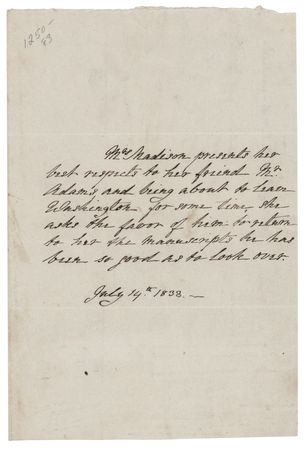 1250
/83
Mrs Madison presents her
best respects to her friend Mr
Adams, and being about to leave
Washington for some time, she
asks the favor of him to return
to her the manuscripts he has
been so good as to look over.
July 14th 1838.—